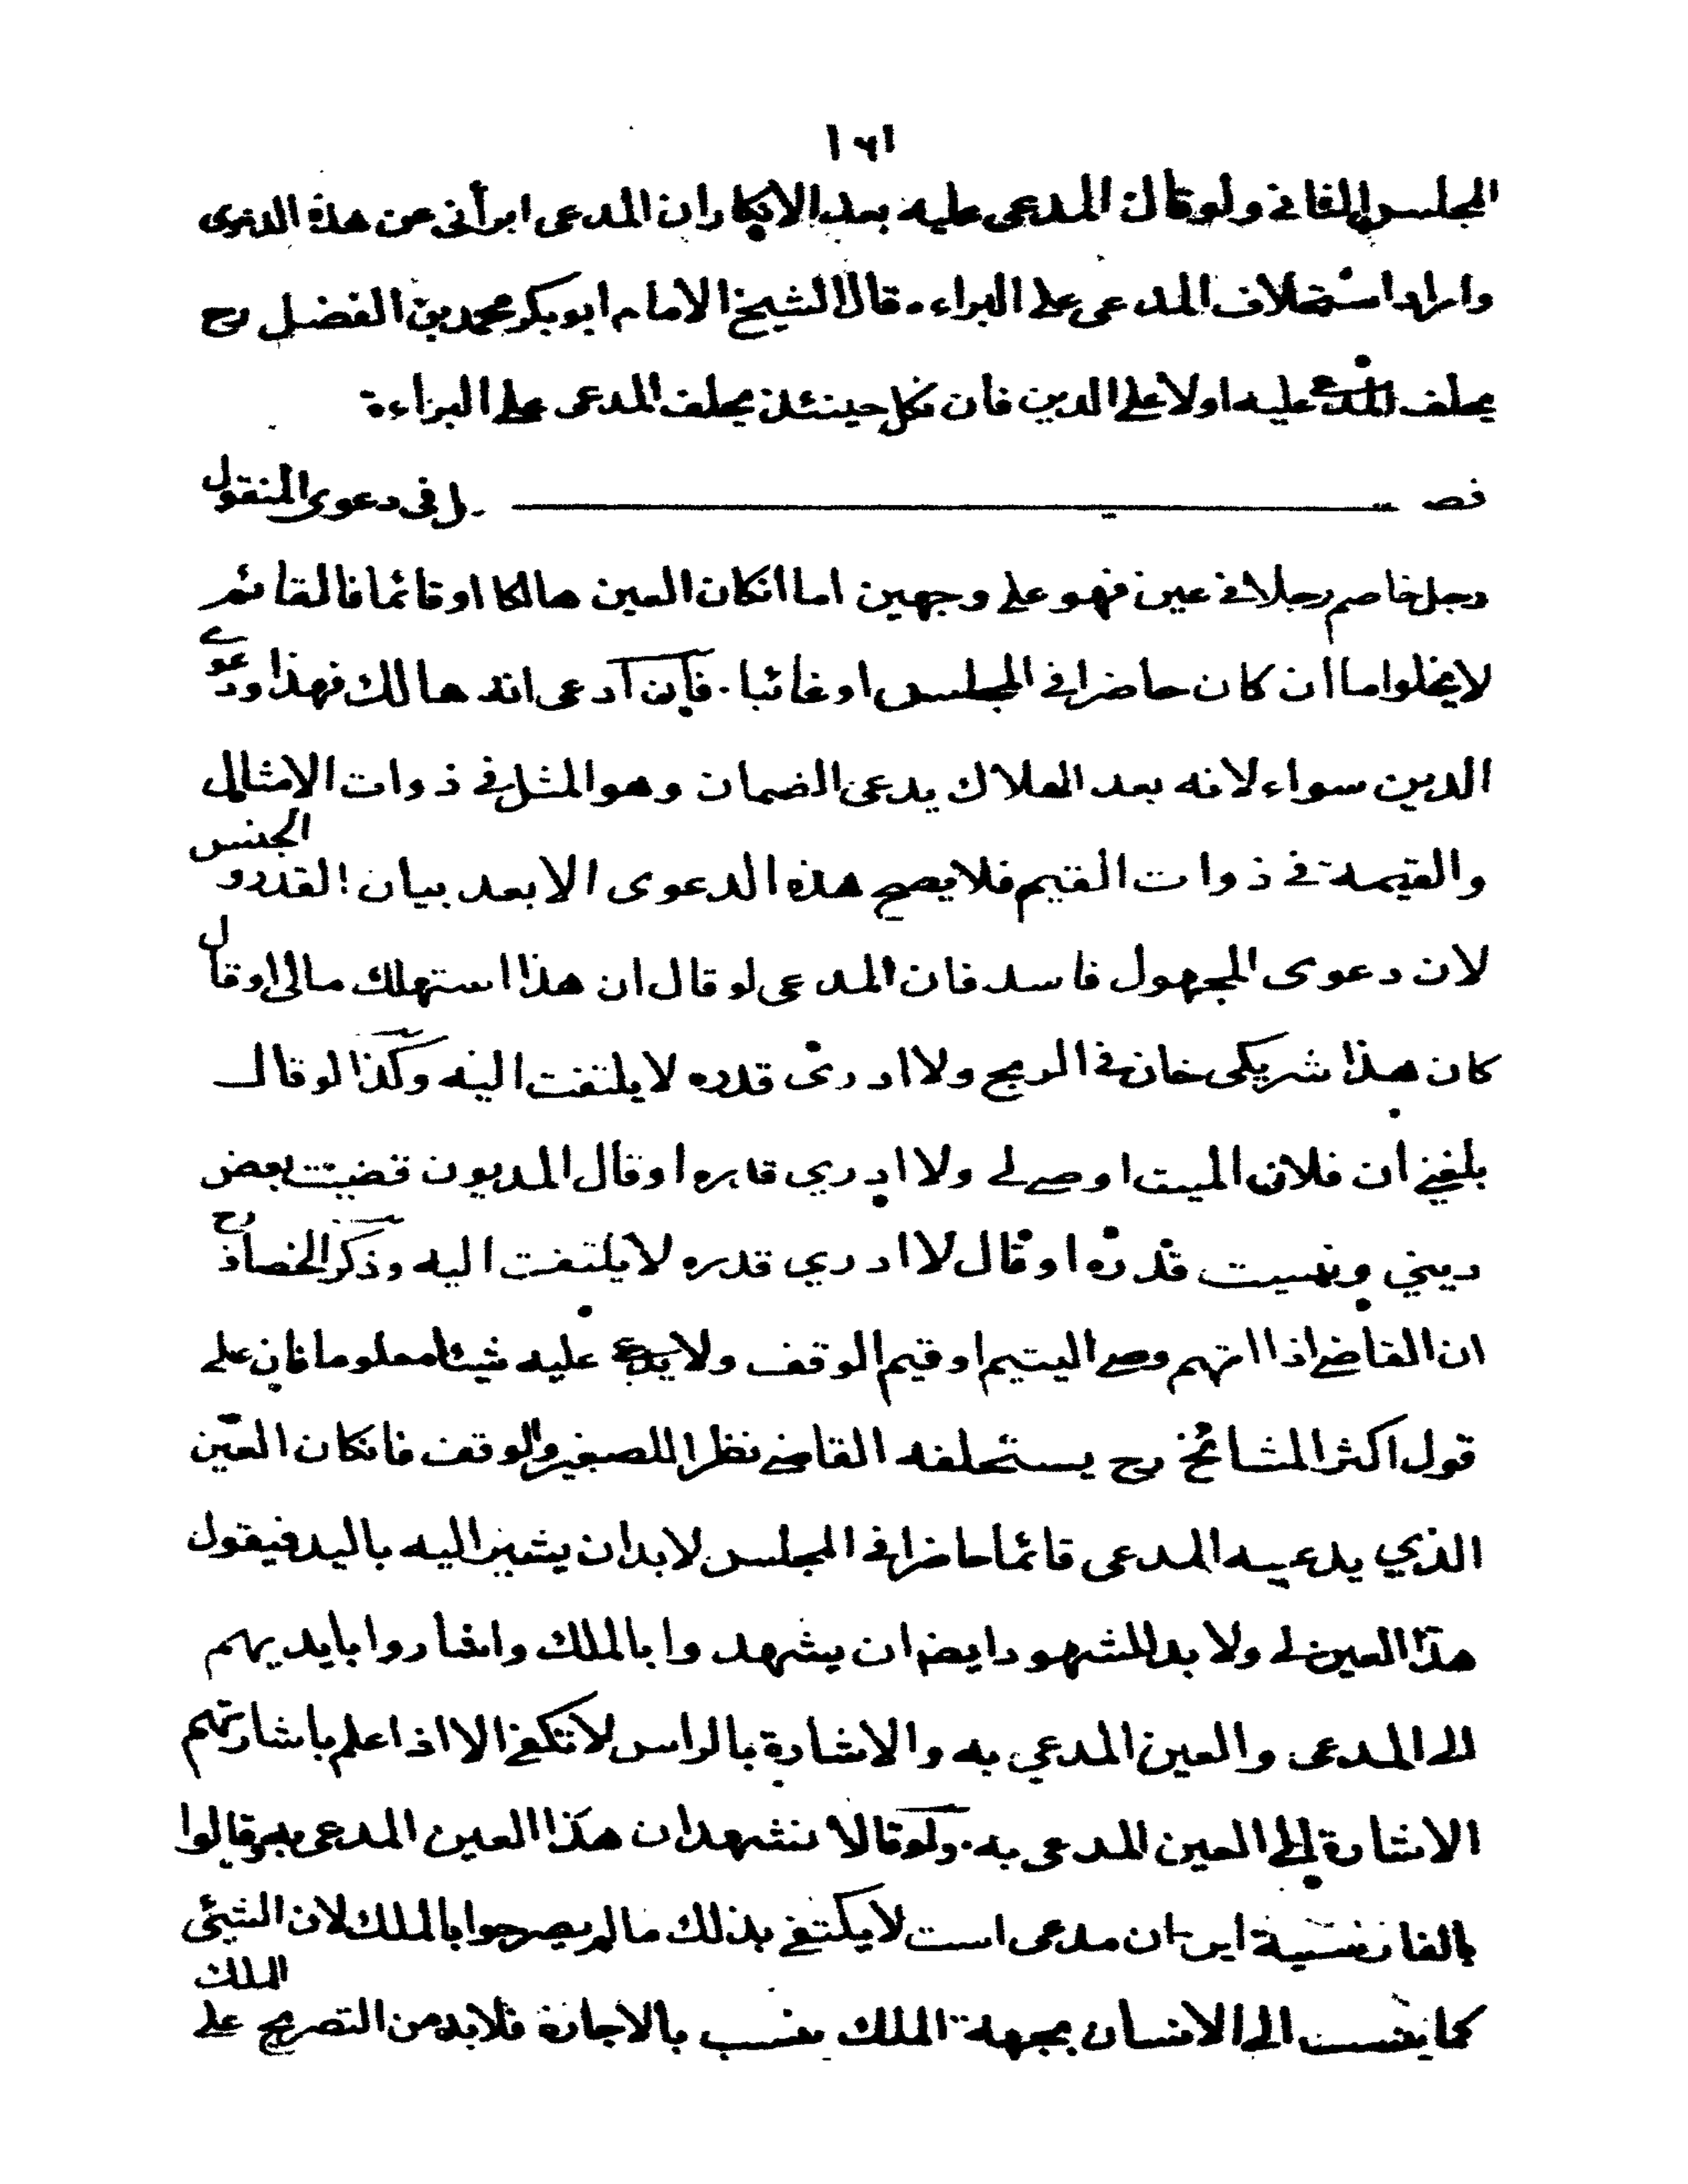 ١٦١
المجلس الثاني ولو قال المدعى عليه بعد الانكار ان المدعى ابرأنى عن هذه الدعوى
واراد استحلاف المدعى على البراءه قال الشيخ الامام ابوبكر محمد بن الفضل رح
يحلف المدعى عليه اولا على الدين فان نكل حينئذ يحلف المدعى على البراءة
فصـ ـل فى دعوى المنقول
رجل خاصم رجلا في عين فهو على وجهين اما انكان العين هالكا او قائما فالقائم
لا يخلوا ما ان كان حاضرا في المجلس او غائبا . فان ادعى انه هالك فهذا ودعوى
الدين سواء لانه بعد الهلاك يدعى الضمان وهو المثل في ذوات الامثال
والقيمة في ذوات القيم فلا يصح هذه الدعوى الا بعد بيان القدر و الجنس
لان دعوى المجهول فاسد فان المدعى لو قال ان هذا استهلك مالى او قال
كان هذا شريكى خان في الربح ولا ادرى قدره لا يلتفت اليه وكذا لو قال
بلغني ان فلان الميت اوصى لي ولا ادري قدره او قال المديون قضيت بعض
ديني ونسيت قدره او قال لا ادري قدره لا يلتفت اليه وذكر الخصاف رح
ان القاضي اذا اتهم وصى اليتيم او قيم الوقف ولا يدعى عليه شيئا معلوما فان على
قول اكثر المشائخ رح يستحلفه القاضي نظرا للصغير والوقف فانكان العين
الذي يدعيه المدعى قائما حاضرا في المجلس لا بد ان يشير اليه باليد فيقول
هذا العين لي ولا بد للشهود ايضا ان يشهدوا بالملك واشاروا بايديهم
الى المدعى والعين المدعي به والاشارة بالراس لا تكفي الا اذا علم باشارتهم
الاشارة الى العين المدعى به . ولو قالا نشهد ان هذا العين المدعى به وقالوا
بالفارسية اين ان مدعى است لا يكتفى بذلك ما لم يصرحوا بالملك لان الشيئى
كما ينسب الى الانسان بجهة الملك ينسب بالاجارة فلا بد من التصريح على الملك